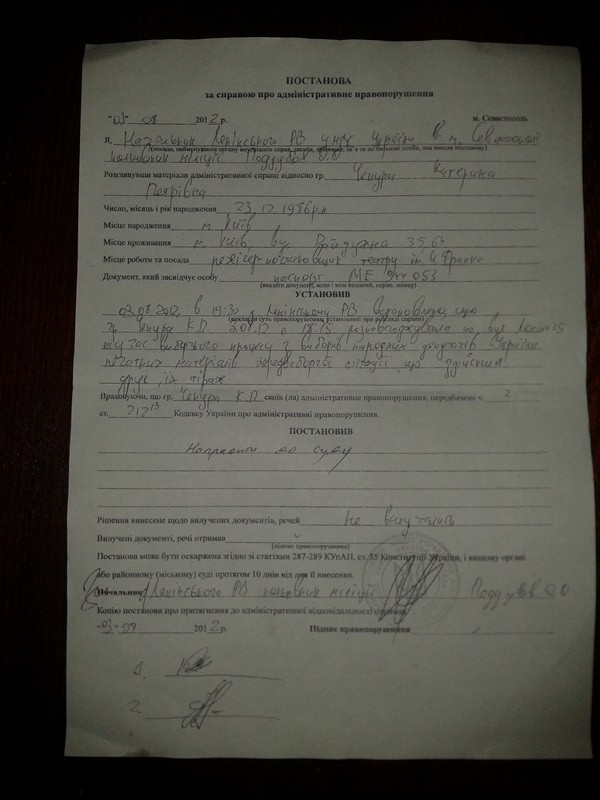 ПОСТАНОВА
за справою про адміністративне правопорушення
"03" 08 2012 р. м. Севастополь
Я, Начальник Ленінського РВ УМВ України в м. Севастополі
(посада, найменування органу внутрішніх справ, звання, прізвище, ім'я та по батькові особи, яка винесла постанову)
полковник міліції Поддубов О.О
Розглянувши матеріали адміністративної справи відносно гр. Чепура Катерина
Петрівна
Число, місяць і рік народження 23.12.1986 р.н
Місце народження м. Київ
Місце проживання м. Київ, вул.
Місце роботи та посада режисер-постановщик театру ім. И Франка
Документ, який засвідчує особу паспорт МЕ 053
(вказати документ, коли і ким виданий, серію, номер)
УСТАНОВИВ
03.08.2012 в 19:30 Ленінському РВ встановлено, що
(викласти суть правопорушення, установлені при розгляді справи)
гр Чепура К.П 2.08.12 о 18:15 розповсюджувала по вул Леніна
під час виборчого процесу з виборів народних депутатів України
друк, їх тираж
Враховуючи, що гр. Чепура К.П скоїв (ла) адміністративне правопорушення, передбачене ч. 2
ст. 212 13 Кодексу України про адміністративні правопорушення
ПОСТАНОВИВ
Направити до суду
Рішення винесене щодо вилучених документів, речей не вилучались
Вилучені документи, речі отримав
(підпис правопорушника)
Постанова може бути оскаржена згідно зі статтями 287-289 КУпАП, ст. 55 Конституції України, і вищому органі
або районному (міському) суді протягом 10 днів від дня її винесення.
Начальник Ленінського РВ полковник міліції Поддубов О.О
Копію постанови про притягнення до адміністративної відповідальності отримав
"03" 2012 р. Підпис правопорушника
1.
2.